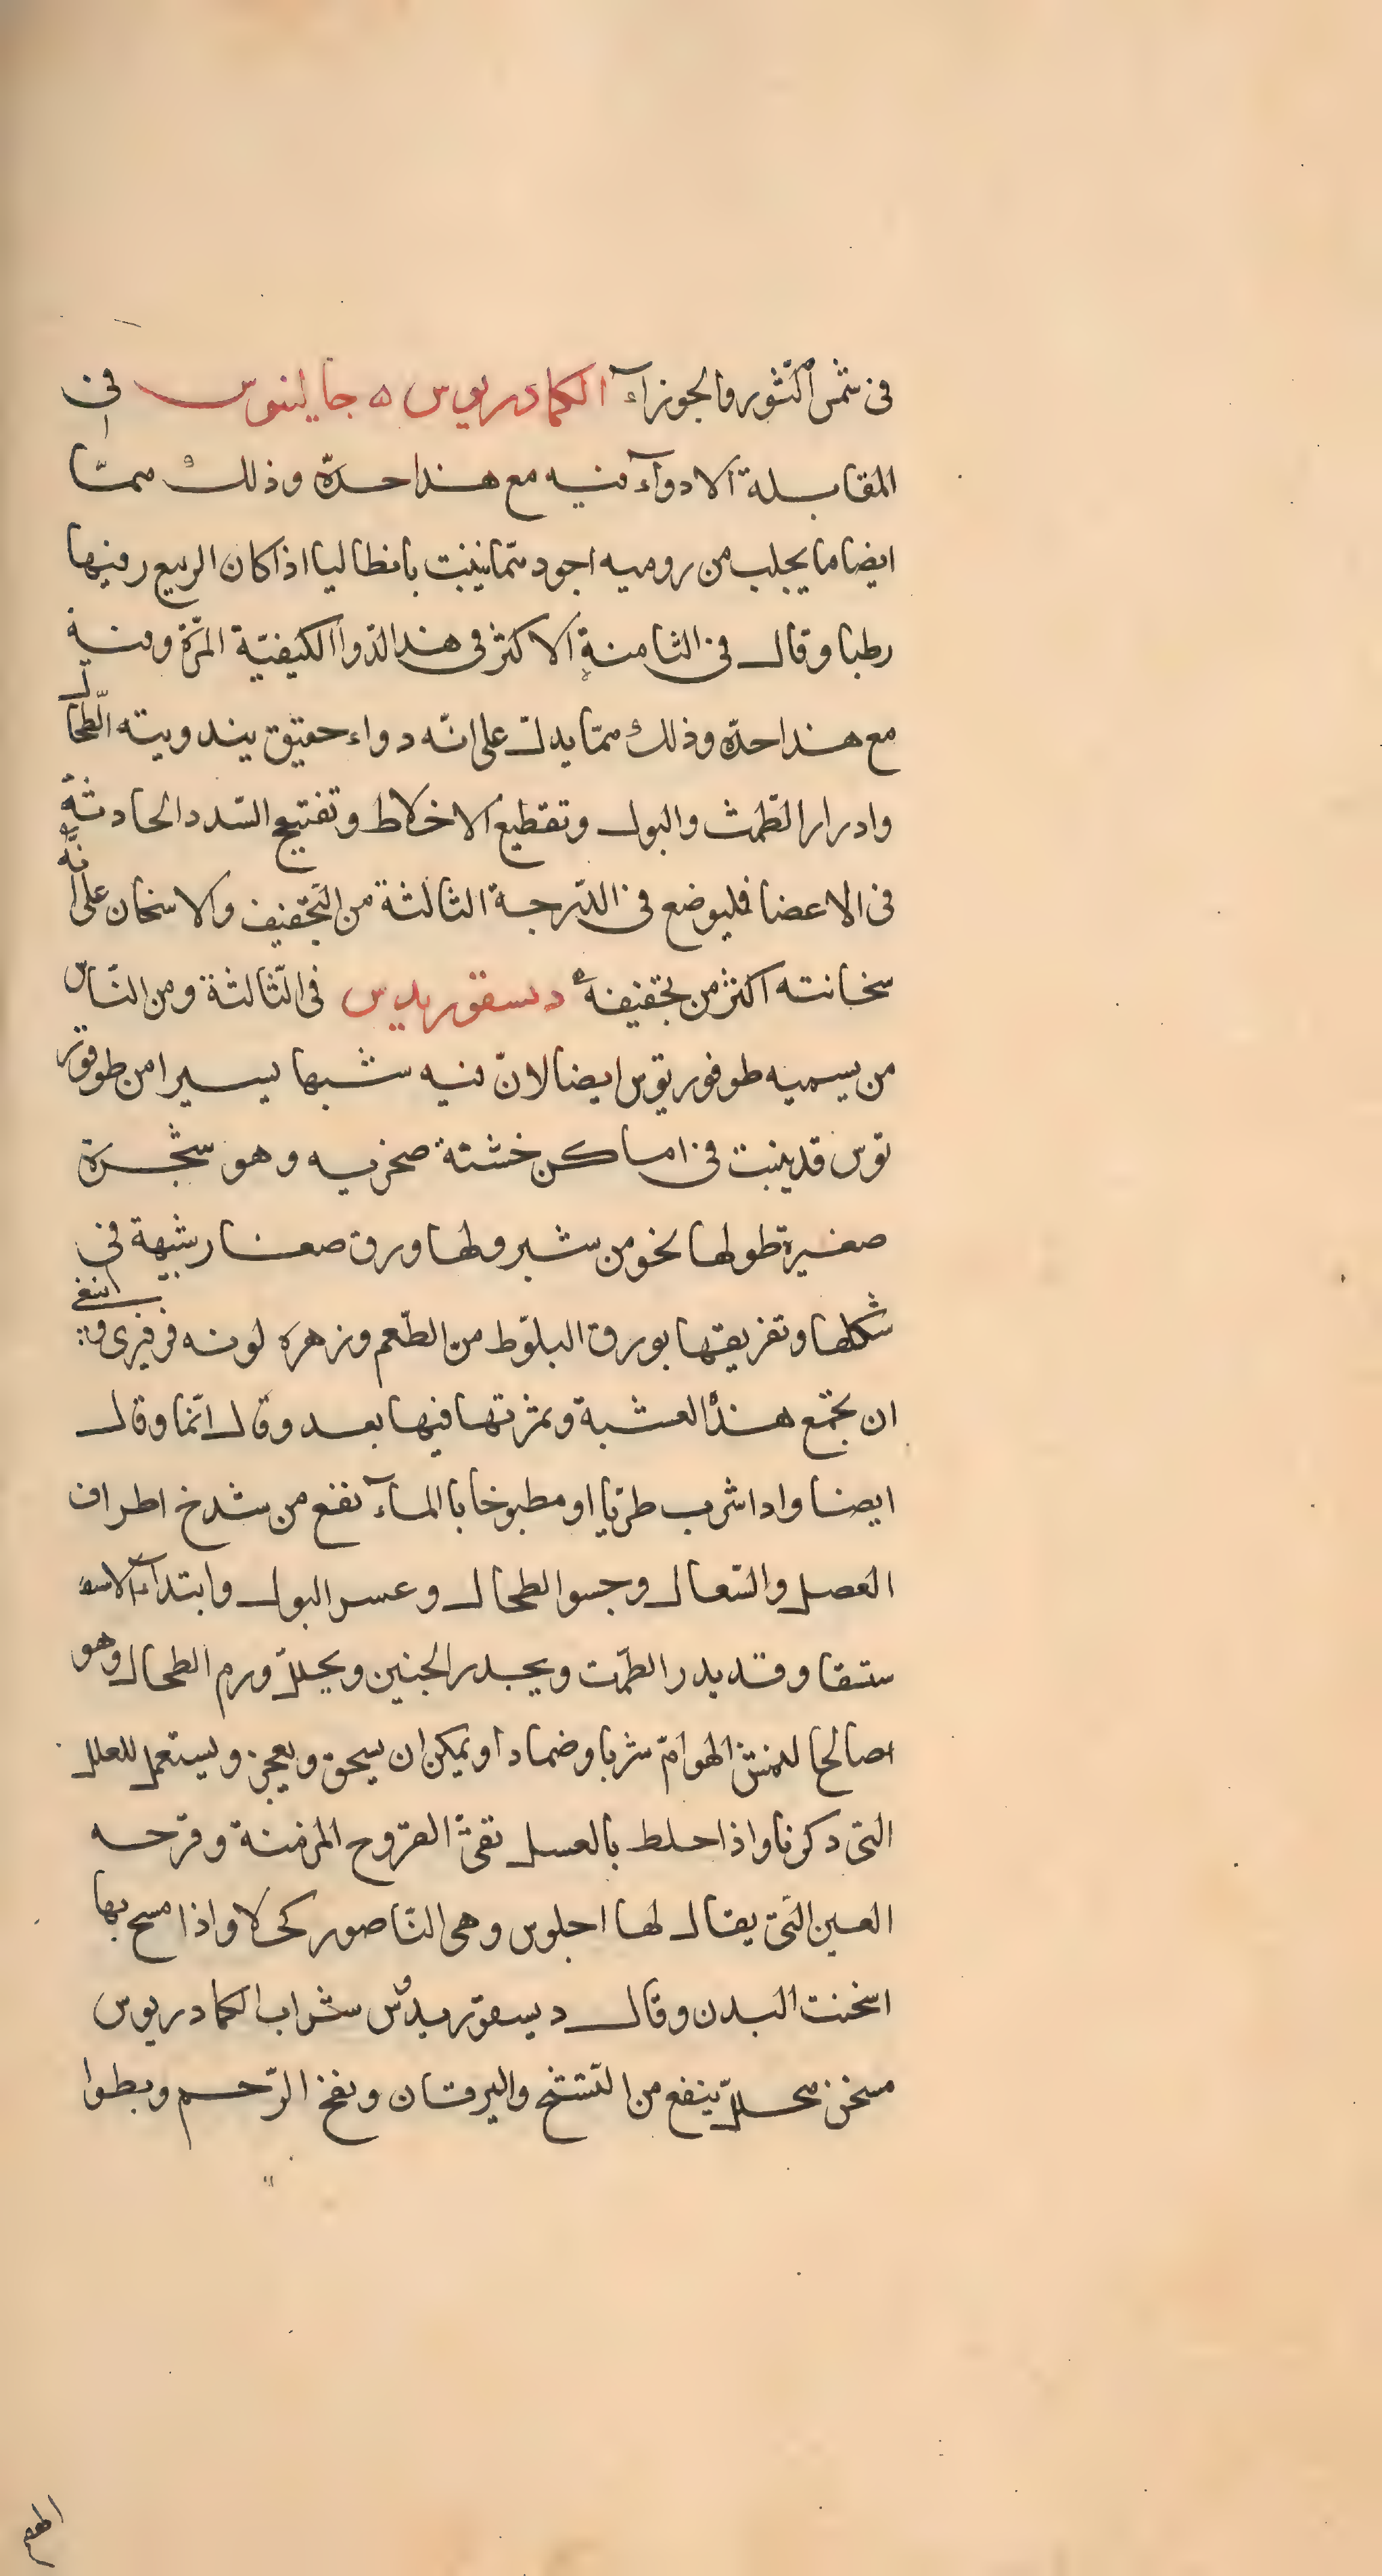 في شمس الثور والجوزاء الكمادريوس ه جالينوس في
المقابلة الادواء فيه مع هذا حدة وذلك مما
ايضا ما يجلب من روميه اجود مما ينبت بانطاليا اذا كان الربيع فيها
رطبا وقال في الثامنة الاكثر في هذا الدوا الكيفية المرة وفيه
مع هذا حدة وذلك مما يدل على انه دواء حقيق الطحال
وادرار الطمث والبول وتقطيع الاخلاط وتفتيح السدد الحادثة
في الاعضا فليوضع في الدرجة الثالثة من التجفيف والاسخان على انه
سخانته اكثر من تجفيفه ديسقوريدس في الثالثة ومن الناس
من يسميه طوفوريوس ايضا لان فيه شبها يسيرا من طوقور
توس قد ينبت في اماكن خشنة صخريه وهو شجرة
صغيرة طولها نحو من شبر ولها ورق صغار شبيهة في
شكلها وتفريقها بورق البلوط من الطعم وزهره لونه فرفيرى و ينبغي
ان تجمع هذه العشبة وثمرتها فيها بعد وقال انما وقال
ايضا واذا شرب طريا او مطبوخا بالماء نفع من شدخ اطراف
العضل والسعال وجسو الطحال وعسر البول وابتداء الاسـ
ستقا وقد يدر الطمت ويحدر الجنين ويحلل ورم الطحال وهو
صالحا لنهش الهوام شربا وضمادا ويمكن ان يسحق ويعجن ويستعمل للعلل
التي ذكرنا واذا خلط بالعسل نقى القروح المزمنة وقرحه
العين التي يقال لها اجلوس وهي الناصور كحلا واذا مسح بها
اسخنت البدن وقال ديسقوريدوس شراب الكمادريوس
مسخن محلل ينفع من التشنج واليرقان ونفخ الرحم وبطوا
الهضم